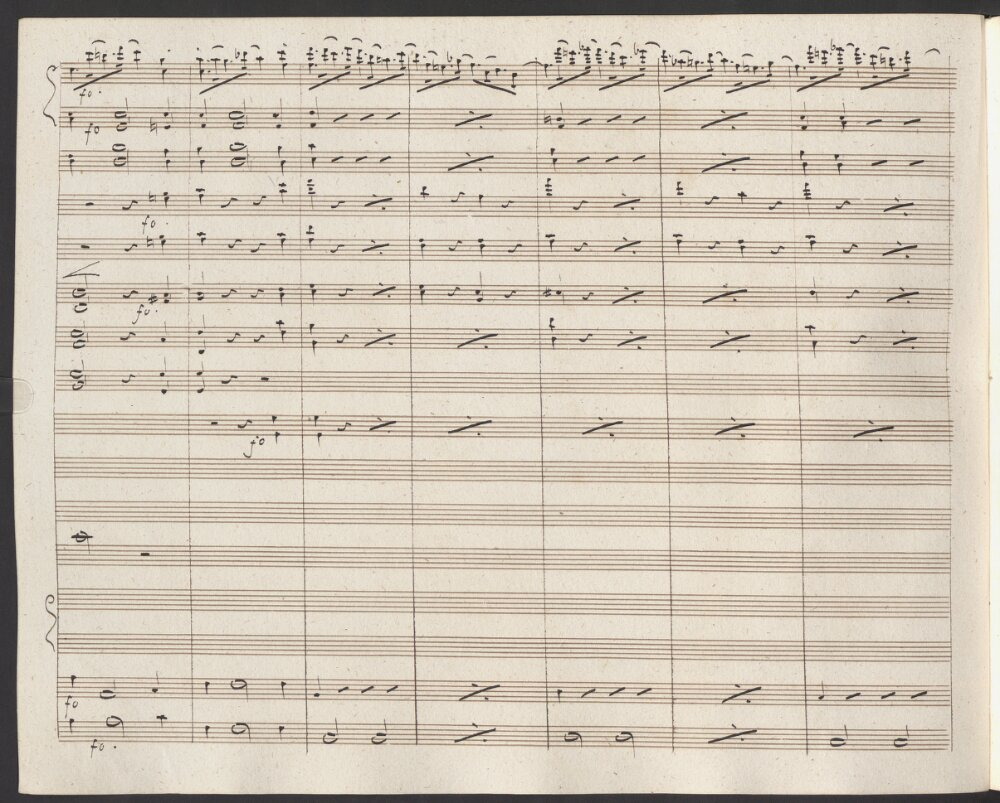 fo.
fo
fo.
fo.
fo
fo
fo.